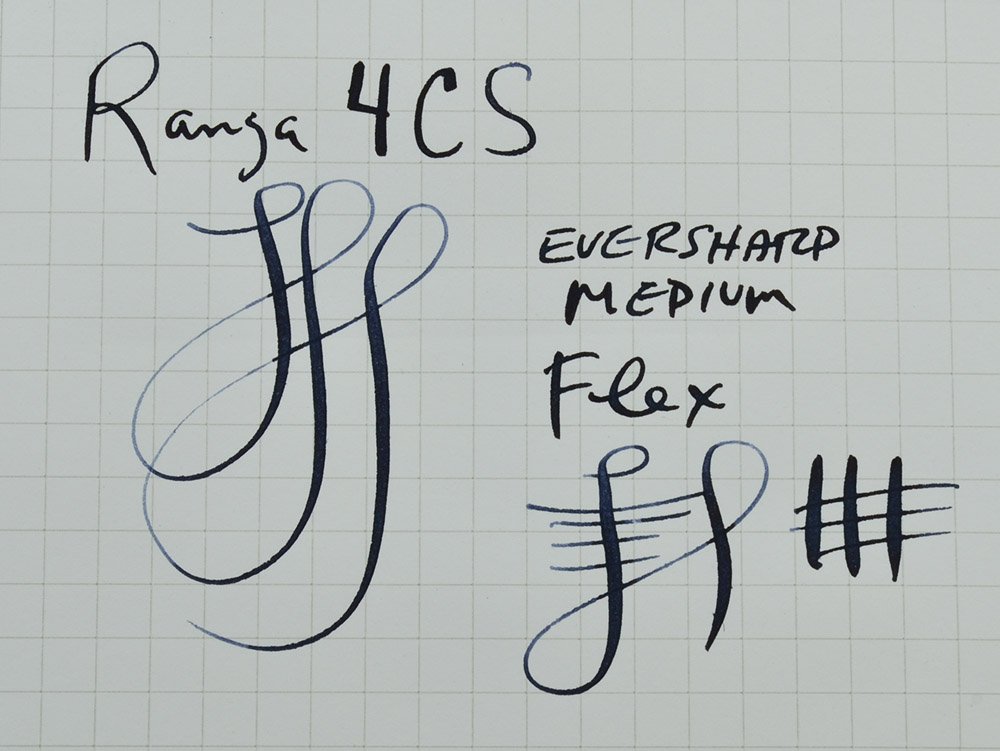 Ranga 4CS
EVERSHARP
MEDIUM
Flex